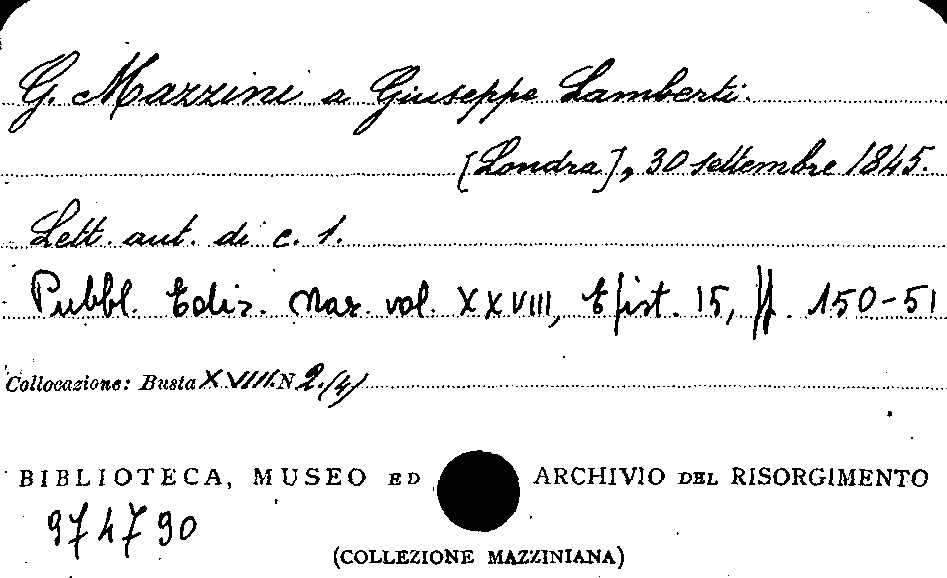 G. Mazzini a Giuseppe Lamberti.
[Londra], 30 settembre 1845.
Lett. aut. di c. 1.
Pubbl. Ediz. Naz. vol. XXVIII, Epist. 15, pp. 150-51
Collocazione: Busta XVIII. N 2. (4)
BIBLIOTECA, MUSEO ED ARCHIVIO DEL RISORGIMENTO
974790
(COLLEZIONE MAZZINIANA)